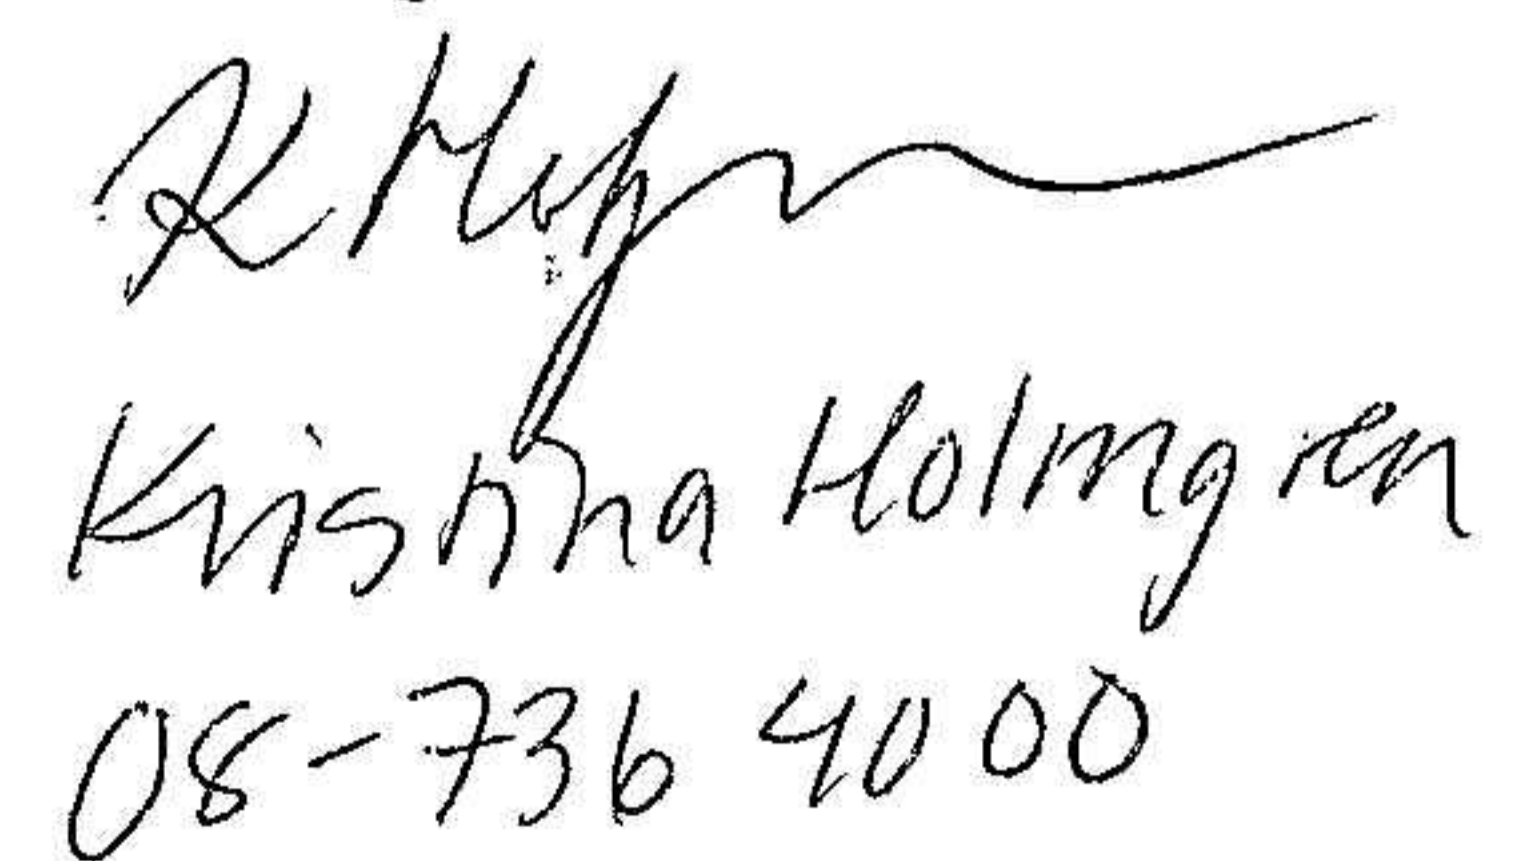 K Holmgren
Kristina Holmgren
08-736 4000